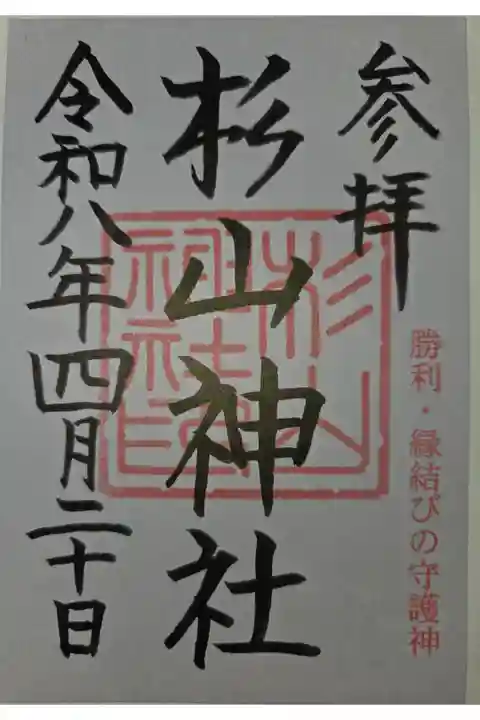 参拝
勝利・縁結びの守護神
杉山神社
令和八年四月二十日
杉山
神社
神社印